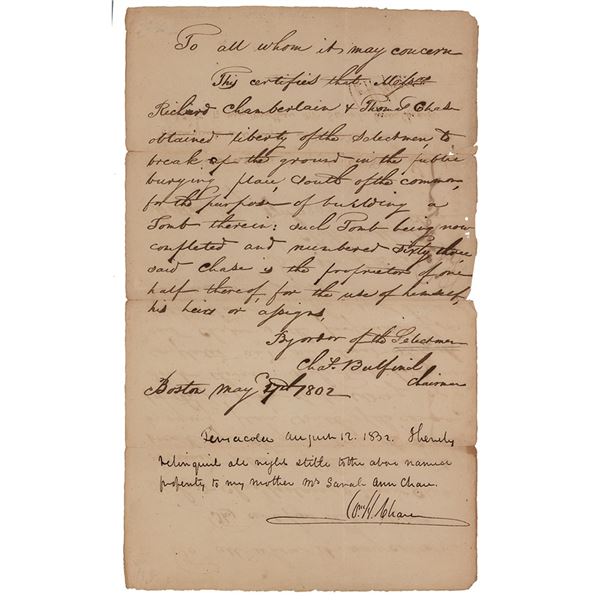 To all whom it may concern
This certifies that Messrs
Richard Chamberlain & Thomas Chase
obtained liberty of the Selectmen, to
break up the ground in the public
burying place, South of the common,
for the purpose of building a
Tomb therein: such Tomb being now
completed and numbered sixty three
said Chase is the proprietor of one
half thereof, for the use of himself,
his heirs or assigns,
By order of the Selectmen
Chas. Bulfinch
Chairman
Boston May 1802
Pensacola August 12. 1832. I hereby
relinquish all right & title to the above named
property to my mother Mrs Sarah Ann Chase.
Wm H. Chase